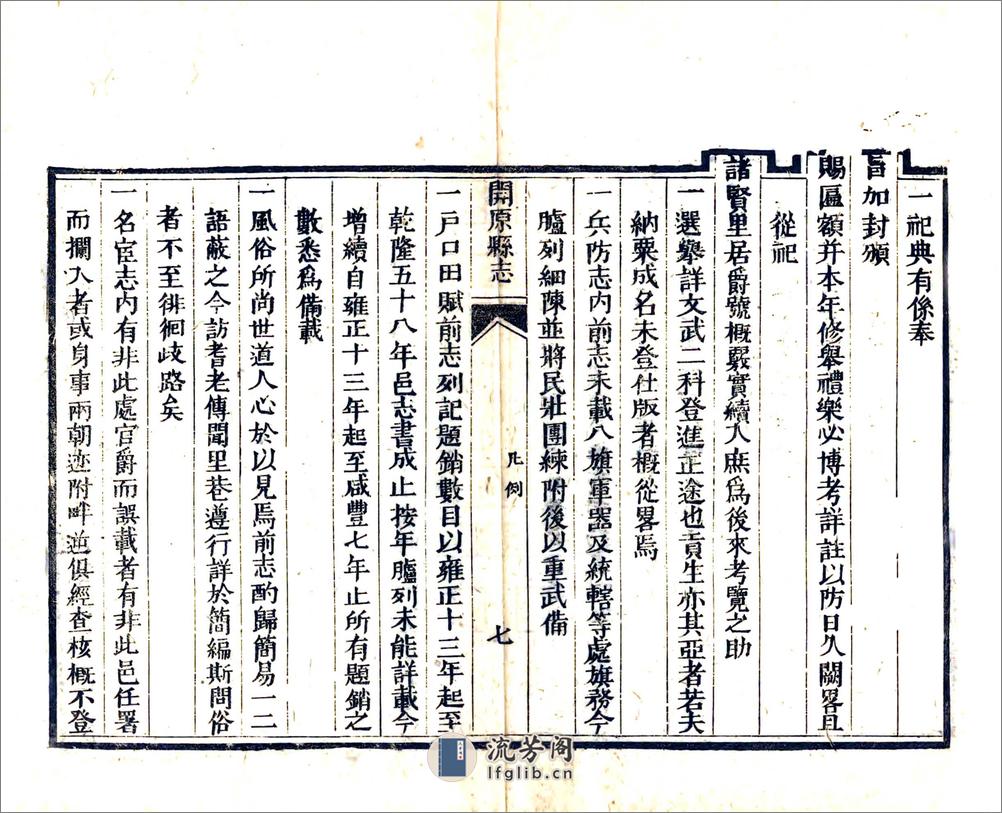 一祀典有係奉
旨加封頒
賜匾額并本年修舉禮樂必博考詳註以防日久闕畧且
從祀
諸賢里居爵號概覈實續入庶爲後來考覽之助
一選舉詳文武二科登進正途也貢生亦其亞者若夫
納粟成名未登仕版者概從畧焉
一兵防志内前志未載八旗軍器及統轄等處旗務今
臚列細陳並將民壯團練附後以重武備
開原縣志
凡例
七
一戸口田賦前志列記題銷數目以雍正十三年起至
乾隆五十八年邑志書成止按年臚列未能詳載今
增續自雍正十三年起至咸豐七年止所有題銷之
數悉爲備載
一風俗所尚世道人心於以見焉前志酌歸簡易一二
語蔽之今訪耆老傳聞里巷遵行詳於簡編斯問俗
者不至徘徊歧路矣
一名宦志内有非此處官爵而誤載者有非此邑任署
而攔入者或身事兩朝迹附畔逆俱經查核概不登
流芳阁
lfglib.cn